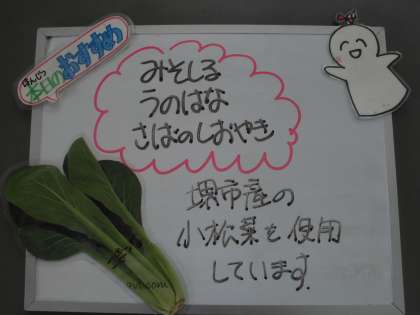 ほんじつ
本日のおすすめ
みそしる
うのはな
さばのしおやき
堺市産の
小松菜を使用
しています。